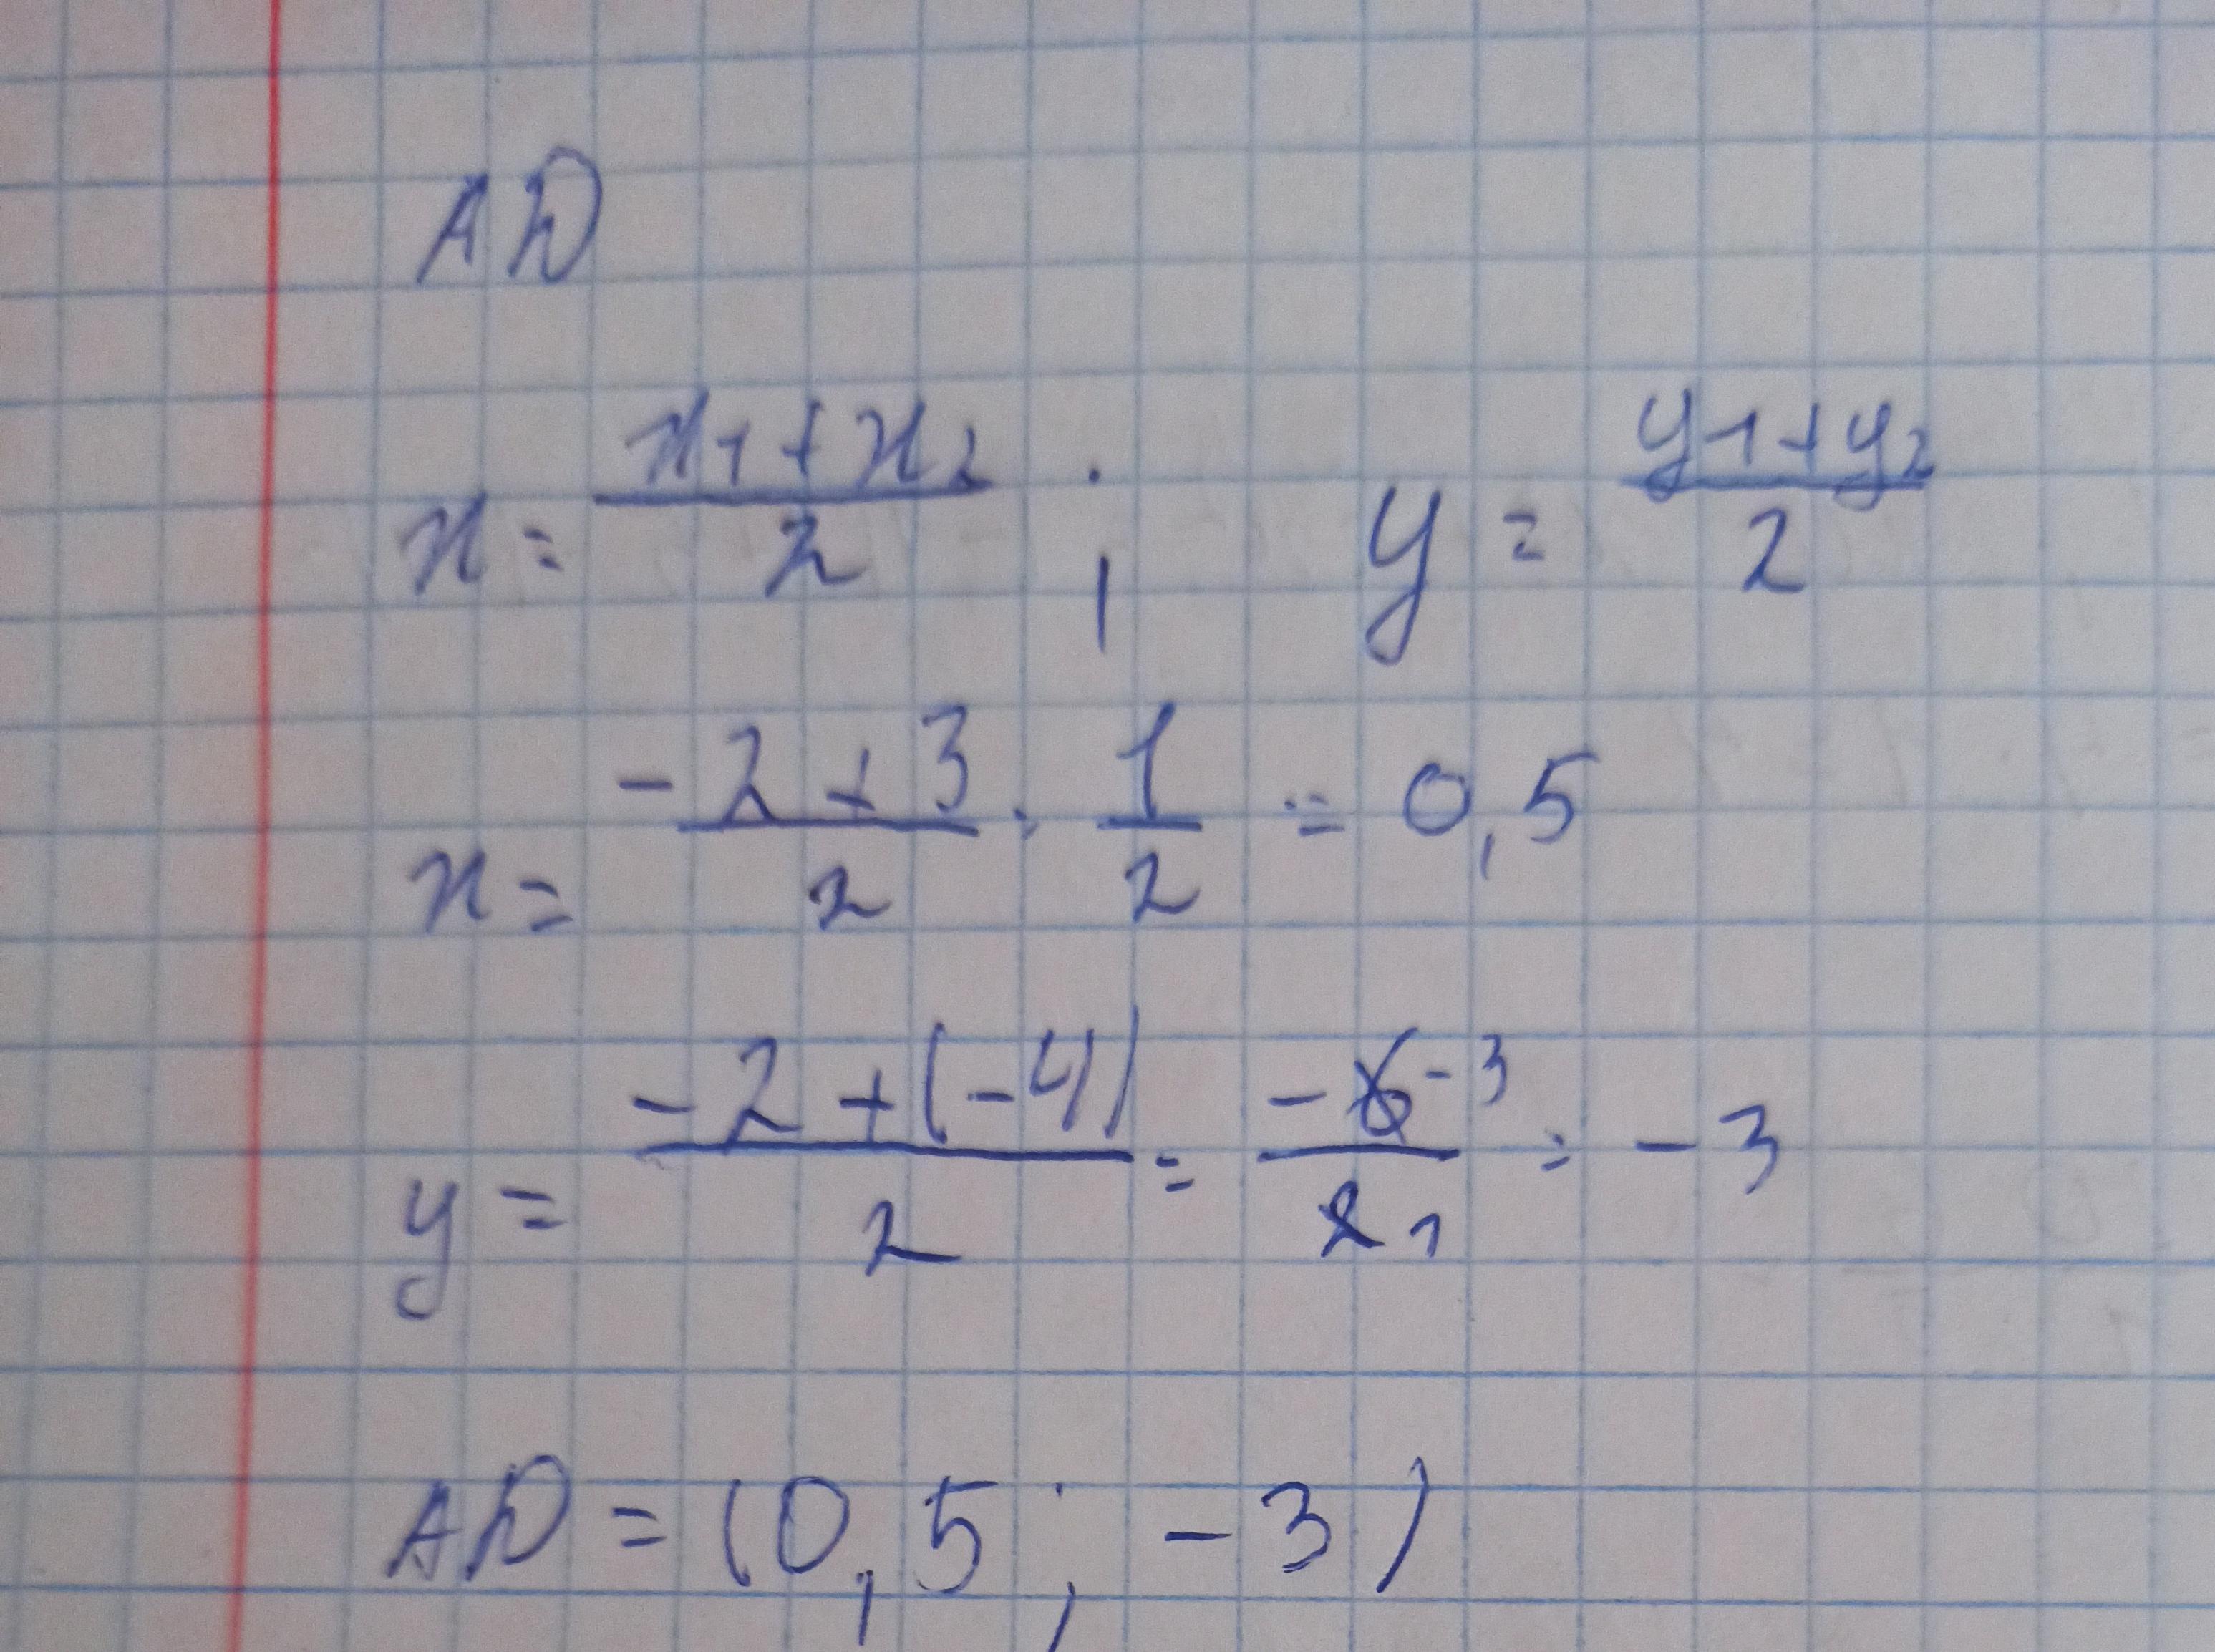 AD
x = x1 + x2 / 2 ; y = y1 + y2 / 2
x = -2 + 3 / 2 = 1 / 2 = 0,5
y = -2 + (-4) / 2 = -6 -3 / 2 1 = -3
AD = (0,5 ; -3)